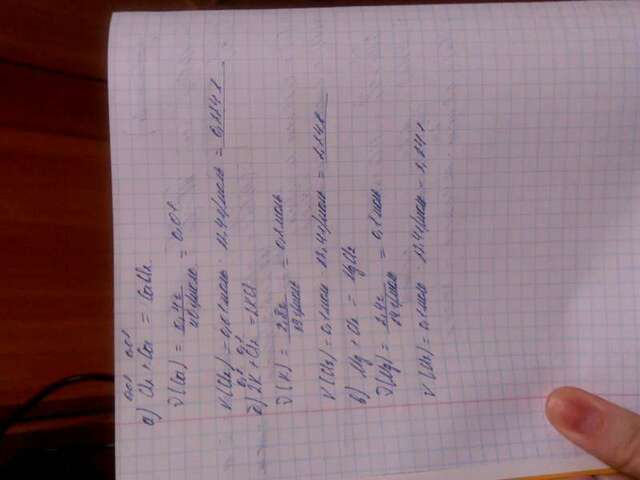 0,01 0,01
а) Cl₂ + Ca = CaCl₂
ν(Ca) = 0,4г / 40г/моль = 0,01
V(Cl₂) = 0,01моль · 22,4л/моль = 0,224л
0,2 0,1
б) 2K + Cl₂ = 2KCl
ν(K) = г / 39г/моль = 0,2моль
V(Cl₂) = 0,1моль · 22,4л/моль = 2,24л
в) Mg + Cl₂ = MgCl₂
ν(Mg) = 2,4г / 24г/моль = 0,1моль
V(Cl₂) = 0,1моль · 22,4л/моль = 2,24л